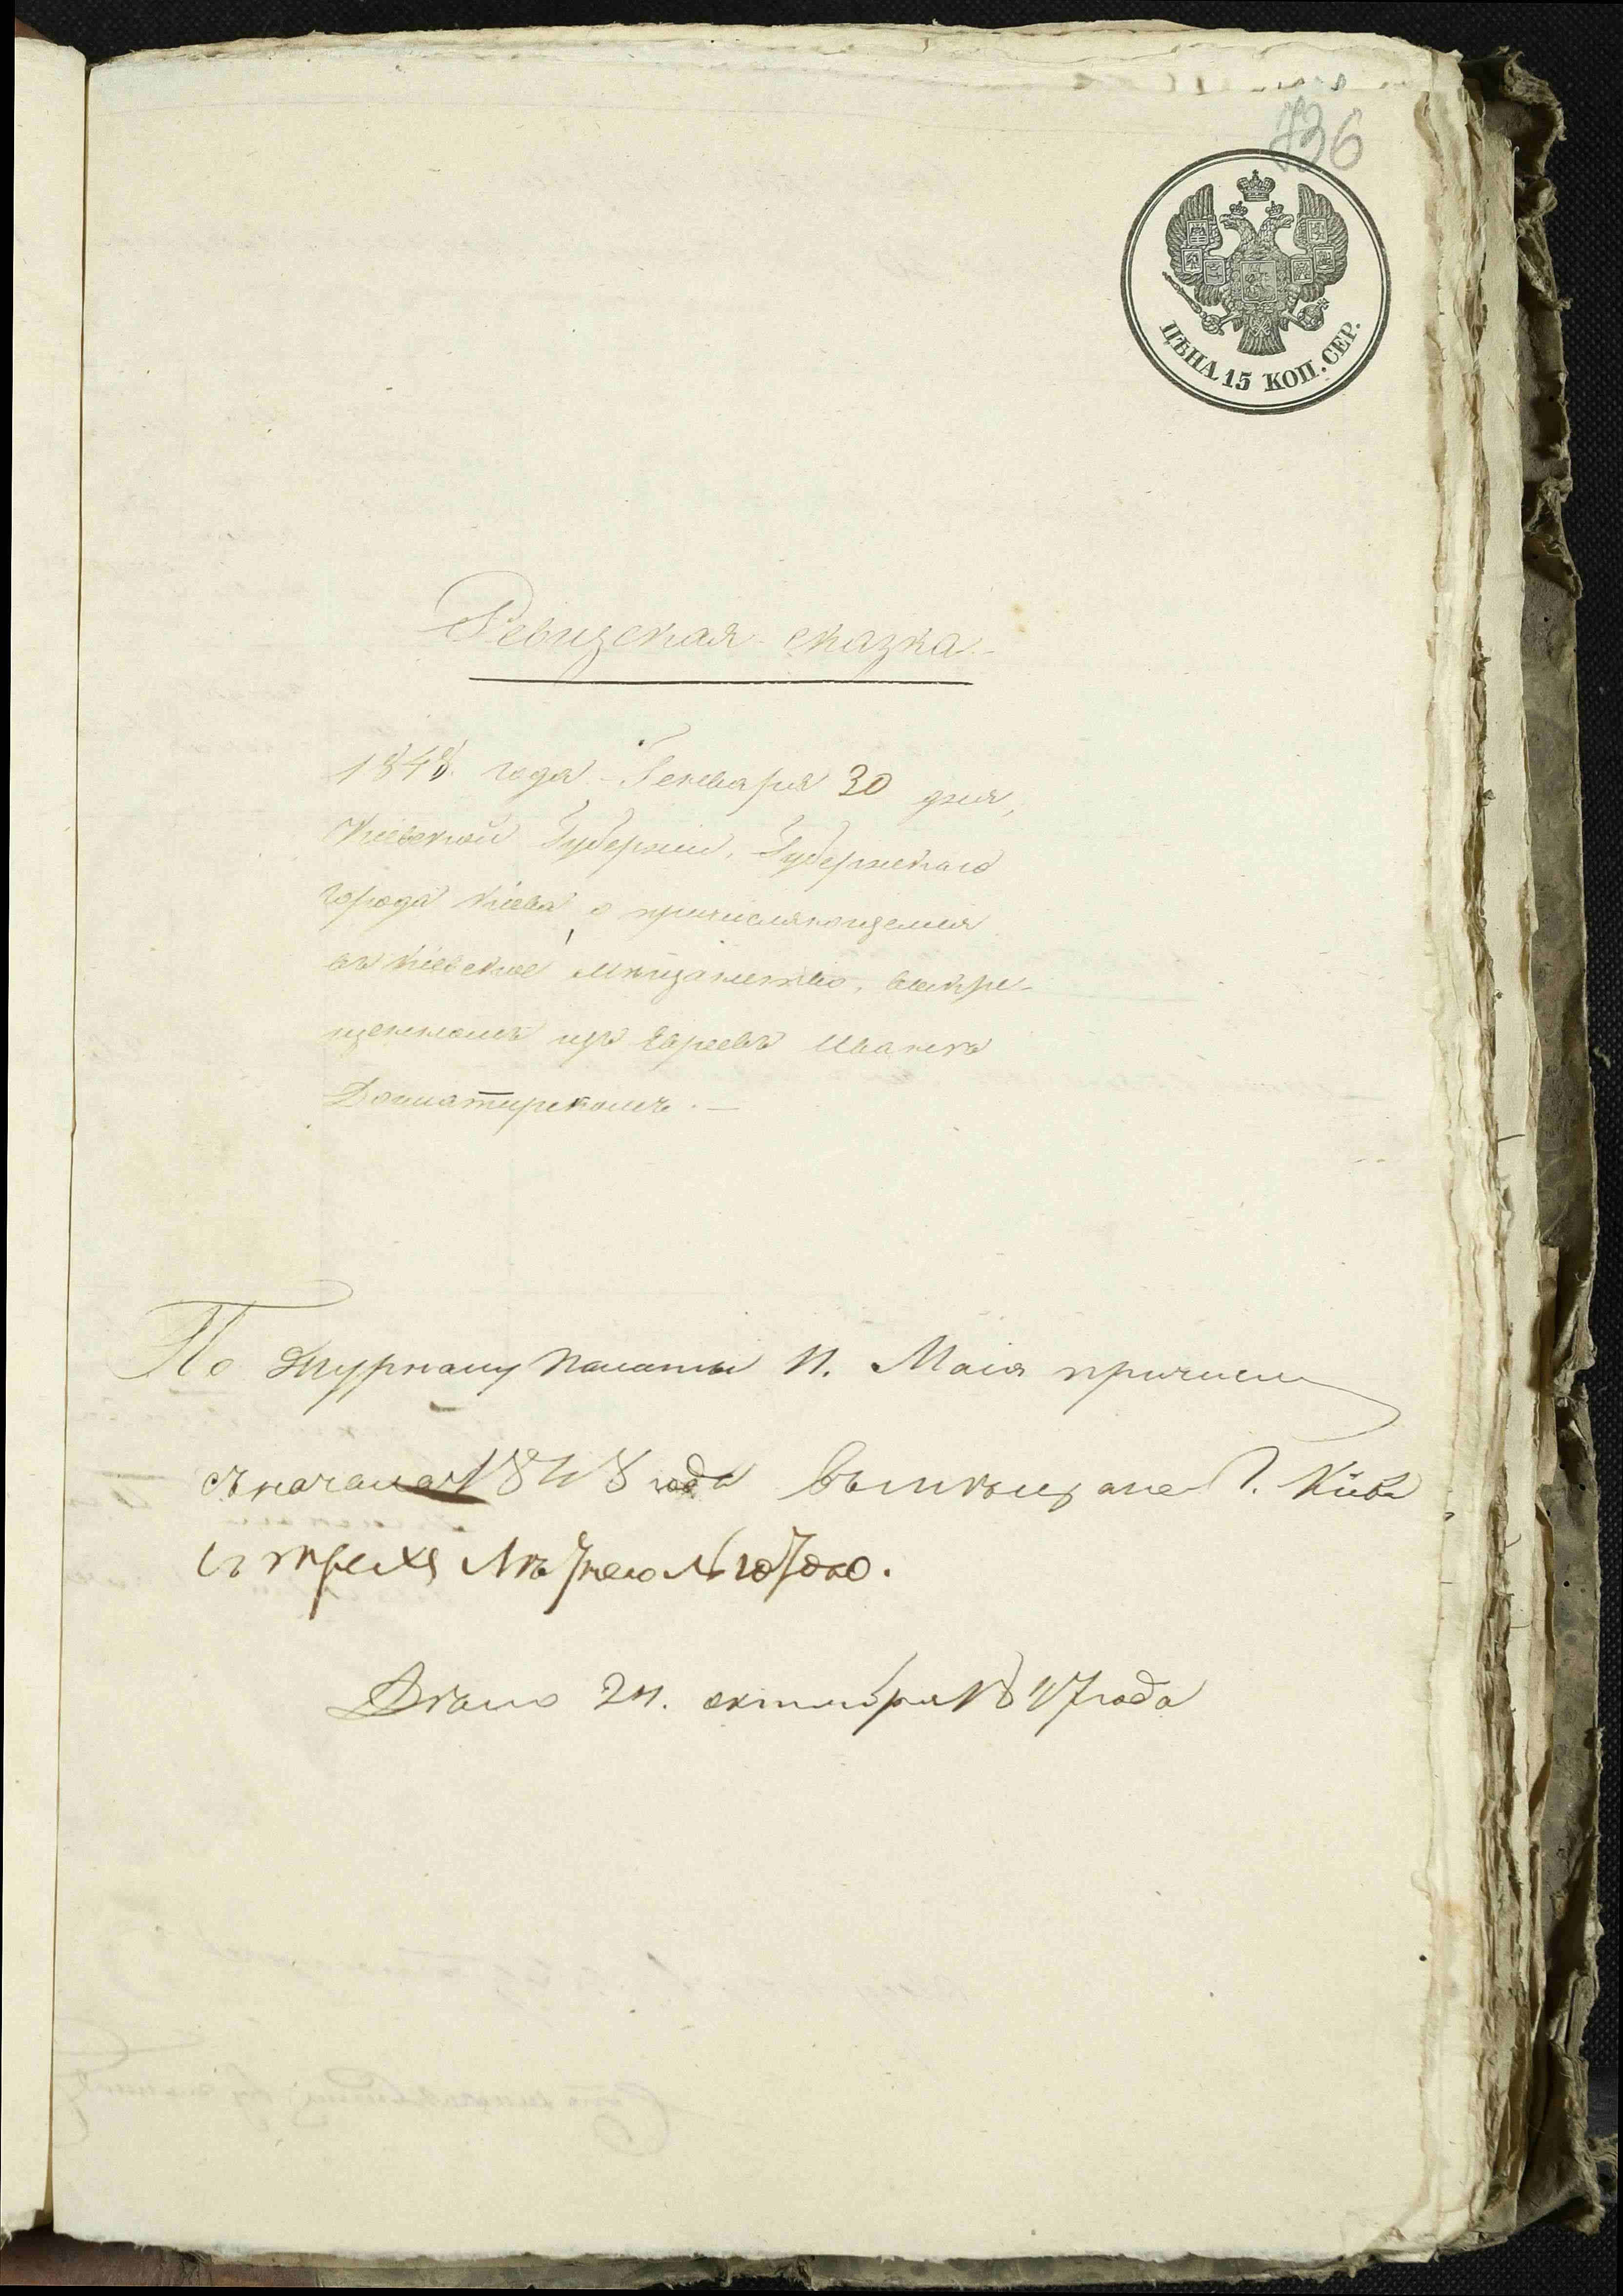 736
ЦѢНА 15 КОП. СЕР.
Ревизская сказка
1848 года Генваря 30 дня,
Кіевской Губерніи, Губернскаго
города Кіева о причисляющемся
въ Кіевское Мѣщанство, выкре-
щенномъ изъ Евреевъ Иванѣ
По Журналу Палаты 11. Маія
съ начала 1848 года въ мѣщане Г. Кіева
съ трехъ Лѣтнею льготою.
24. октября 1847 года